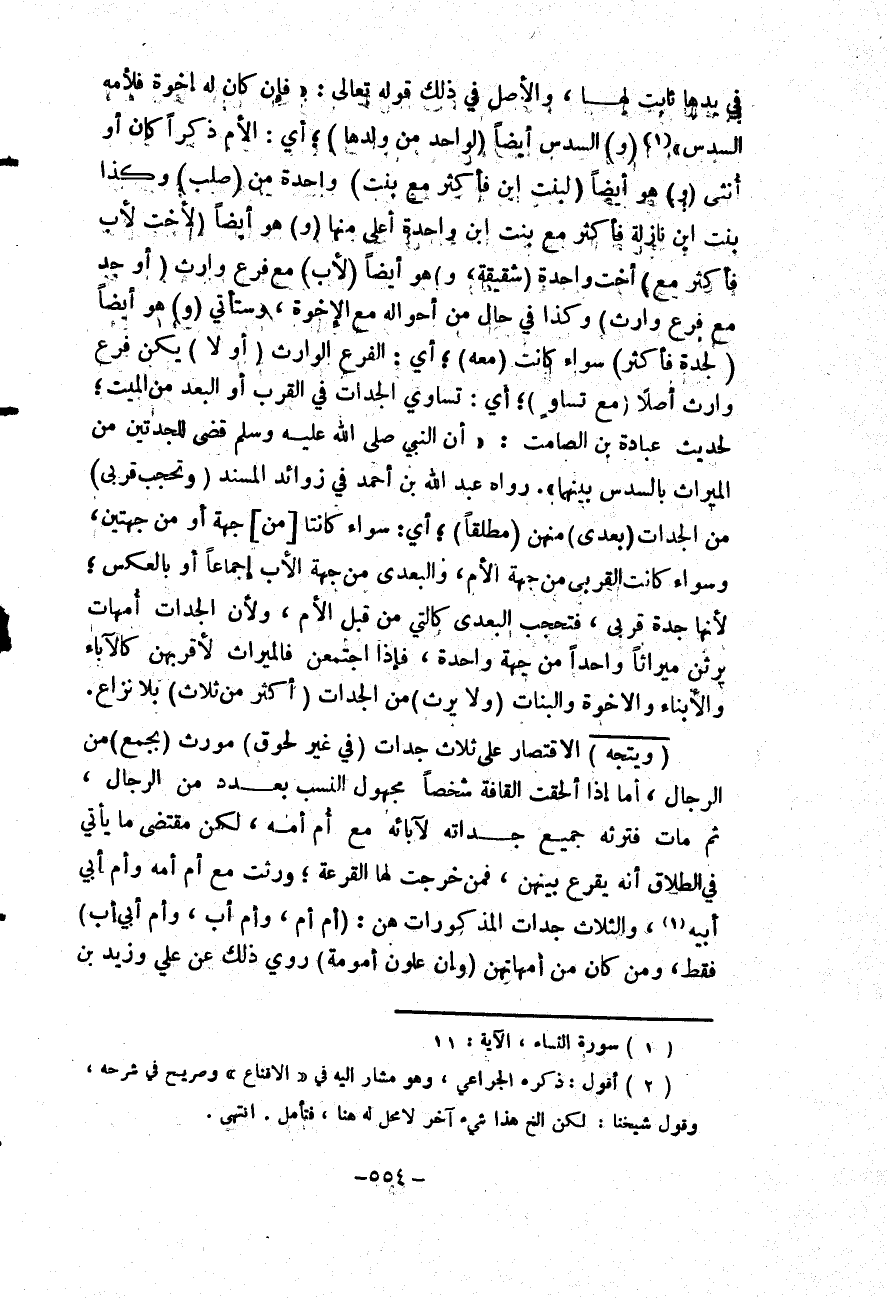 في يدها ثابت لهـــا ، والأصل في ذلك قوله تعالى : « فإن كان له اخوة فلأمه
السدس»(١) (و) السدس أيضاً (لواحد من ولدها ) ؛ أي : الأم ذكراً كان أو
أنثى (و) هو أيضاً (لبنت ابن فأكثر مع بنت) واحدة من (صلب) وكذا
بنت ابن نازلة فأكثر مع بنت ابن واحدة أعلى منها (و) هو أيضاً (لأخت لأب
فأكثر مع) أخت واحدة (شقيقة، و) هو أيضاً (لأب) مع فرع وارث ( أو جد
مع فرع وارث) وكذا في حال من أحواله مع الإخوة ، وستأتي (و) هو أيضاً
( لجدة فأكثر) سواء كانت (معه) ؛ أي : الفرع الوارث ( أو لا ) يكن فرع
وارث أصلاً (مع تساوٍ )؛ أي : تساوي الجدات في القرب أو البعد من الميت ؛
لحديث عبادة بن الصامت : « أن النبي صلى الله عليـه وسلم قضى للجدتين من
الميراث بالسدس بينهما». رواه عبد الله بن أحمد في زوائد المسند ( وتحجب قربى)
من الجدات (بعدى) منهن (مطلقاً) ؛ أي: سواء كانتا [من] جهة أو من جهتين،
وسواء كانت القربى من جهة الأم، والبعدى من جهة الأب إجماعاً أو بالعكس ؛
لأنها جدة قربى ، فتحجب البعدى كالتي من قبل الأم ، ولأن الجدات أمهات
يرثن ميراثاً واحداً من جهة واحدة ، فإذا اجتمعن فالميراث لأقربهن كالآباء
والأبناء والاخوة والبنات (ولا يرث) من الجدات ( أكثر من ثلاث) بلا نزاع.
( ويتجه ) الاقتصار على ثلاث جدات (في غير لحوق) مورث (بجمع) من
الرجال ، أما إذا ألحقت القافة شخصاً مجهول النسب بعـــدد من الرجال ،
ثم مات فترثه جميـع جـــداته لآبائه مع أم أمـه ، لكن مقتضى ما يأتي
في الطلاق أنه يقرع بينهن ، فمن خرجت لها القرعة ؛ ورثت مع أم أمه وأم أبي
أبيه (١) ، والثلاث جدات المذكورات هن : (أم أم ، وأم أب ، وأم أبي أب)
فقط، ومن كان من أمهاتهن (وإن علون أمومة) روي ذلك عن علي وزيد بن
( ١ ) سورة النساء ، الآية : ١١
( ٢ ) أقول : ذكره الجراعي ، وهو مشار اليه في « الاقناع » وصريح في شرحه ،
وقول شيخنا : لكن الخ هذا شيء آخر لامحل له هنا ، فتأمل . انتهى .
– ٥٥٤ –